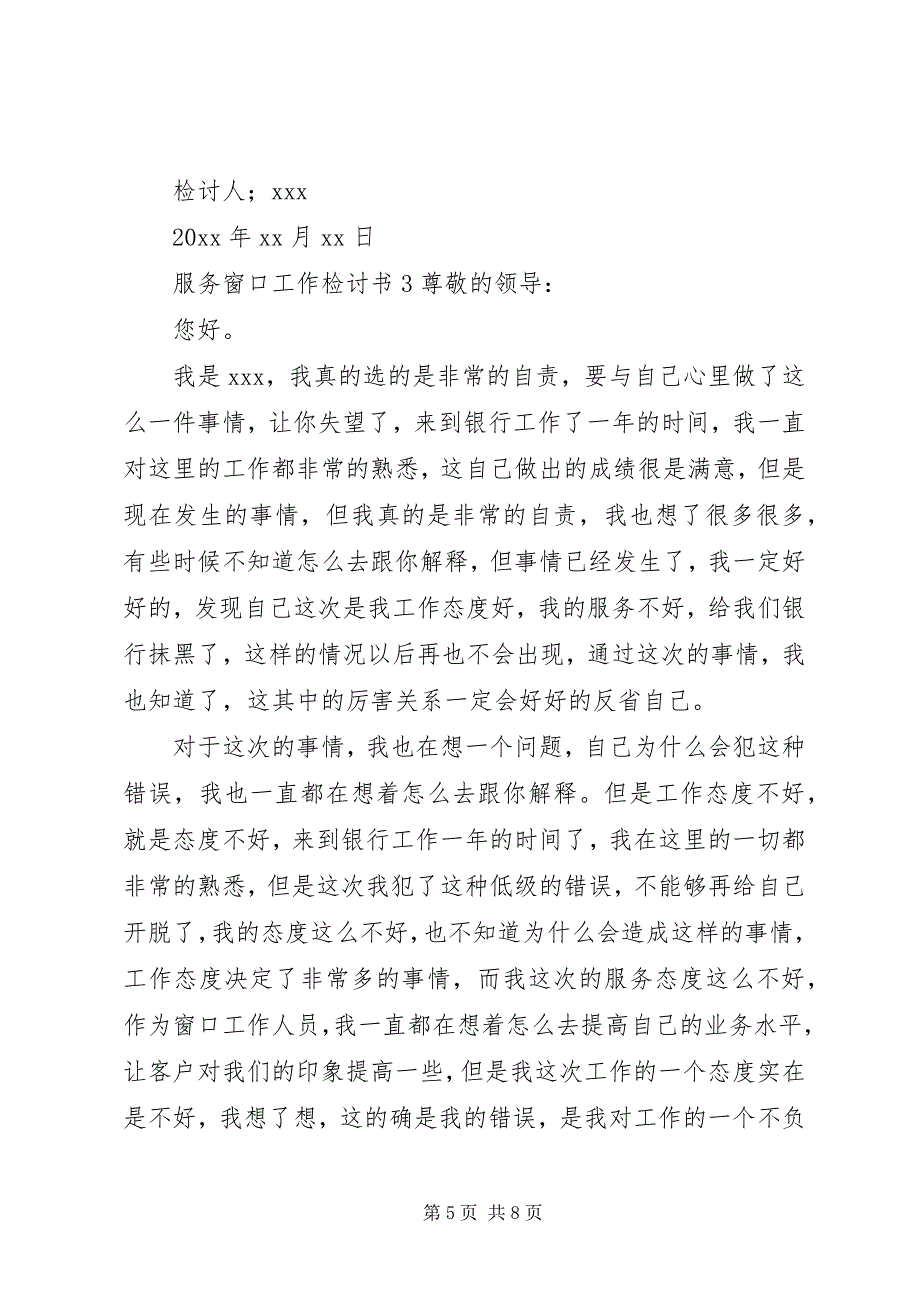 检讨人；xxx
20xx 年 xx 月 xx 日
服务窗口工作检讨书 3 尊敬的领导：
您好。
我是 xxx，我真的选的是非常的自责，要与自己心里做了这
么一件事情，让你失望了，来到银行工作了一年的时间，我一直
对这里的工作都非常的熟悉，这自己做出的成绩很是满意，但是
现在发生的事情，但我真的是非常的自责，我也想了很多很多，
有些时候不知道怎么去跟你解释，但事情已经发生了，我一定好
好的，发现自己这次是我工作态度好，我的服务不好，给我们银
行抹黑了，这样的情况以后再也不会出现，通过这次的事情，我
也知道了，这其中的厉害关系一定会好好的反省自己。
对于这次的事情，我也在想一个问题，自己为什么会犯这种
错误，我也一直都在想着怎么去跟你解释。但是工作态度不好，
就是态度不好，来到银行工作一年的时间了，我在这里的一切都
非常的熟悉，但是这次我犯了这种低级的错误，不能够再给自己
开脱了，我的态度这么不好，也不知道为什么会造成这样的事情，
工作态度决定了非常多的事情，而我这次的服务态度这么不好，
作为窗口工作人员，我一直都在想着怎么去提高自己的业务水平，
让客户对我们的印象提高一些，但是我这次工作的一个态度实在
是不好，我想了想，这的确是我的错误，是我对工作的一个不负
第 5 页 共 8 页